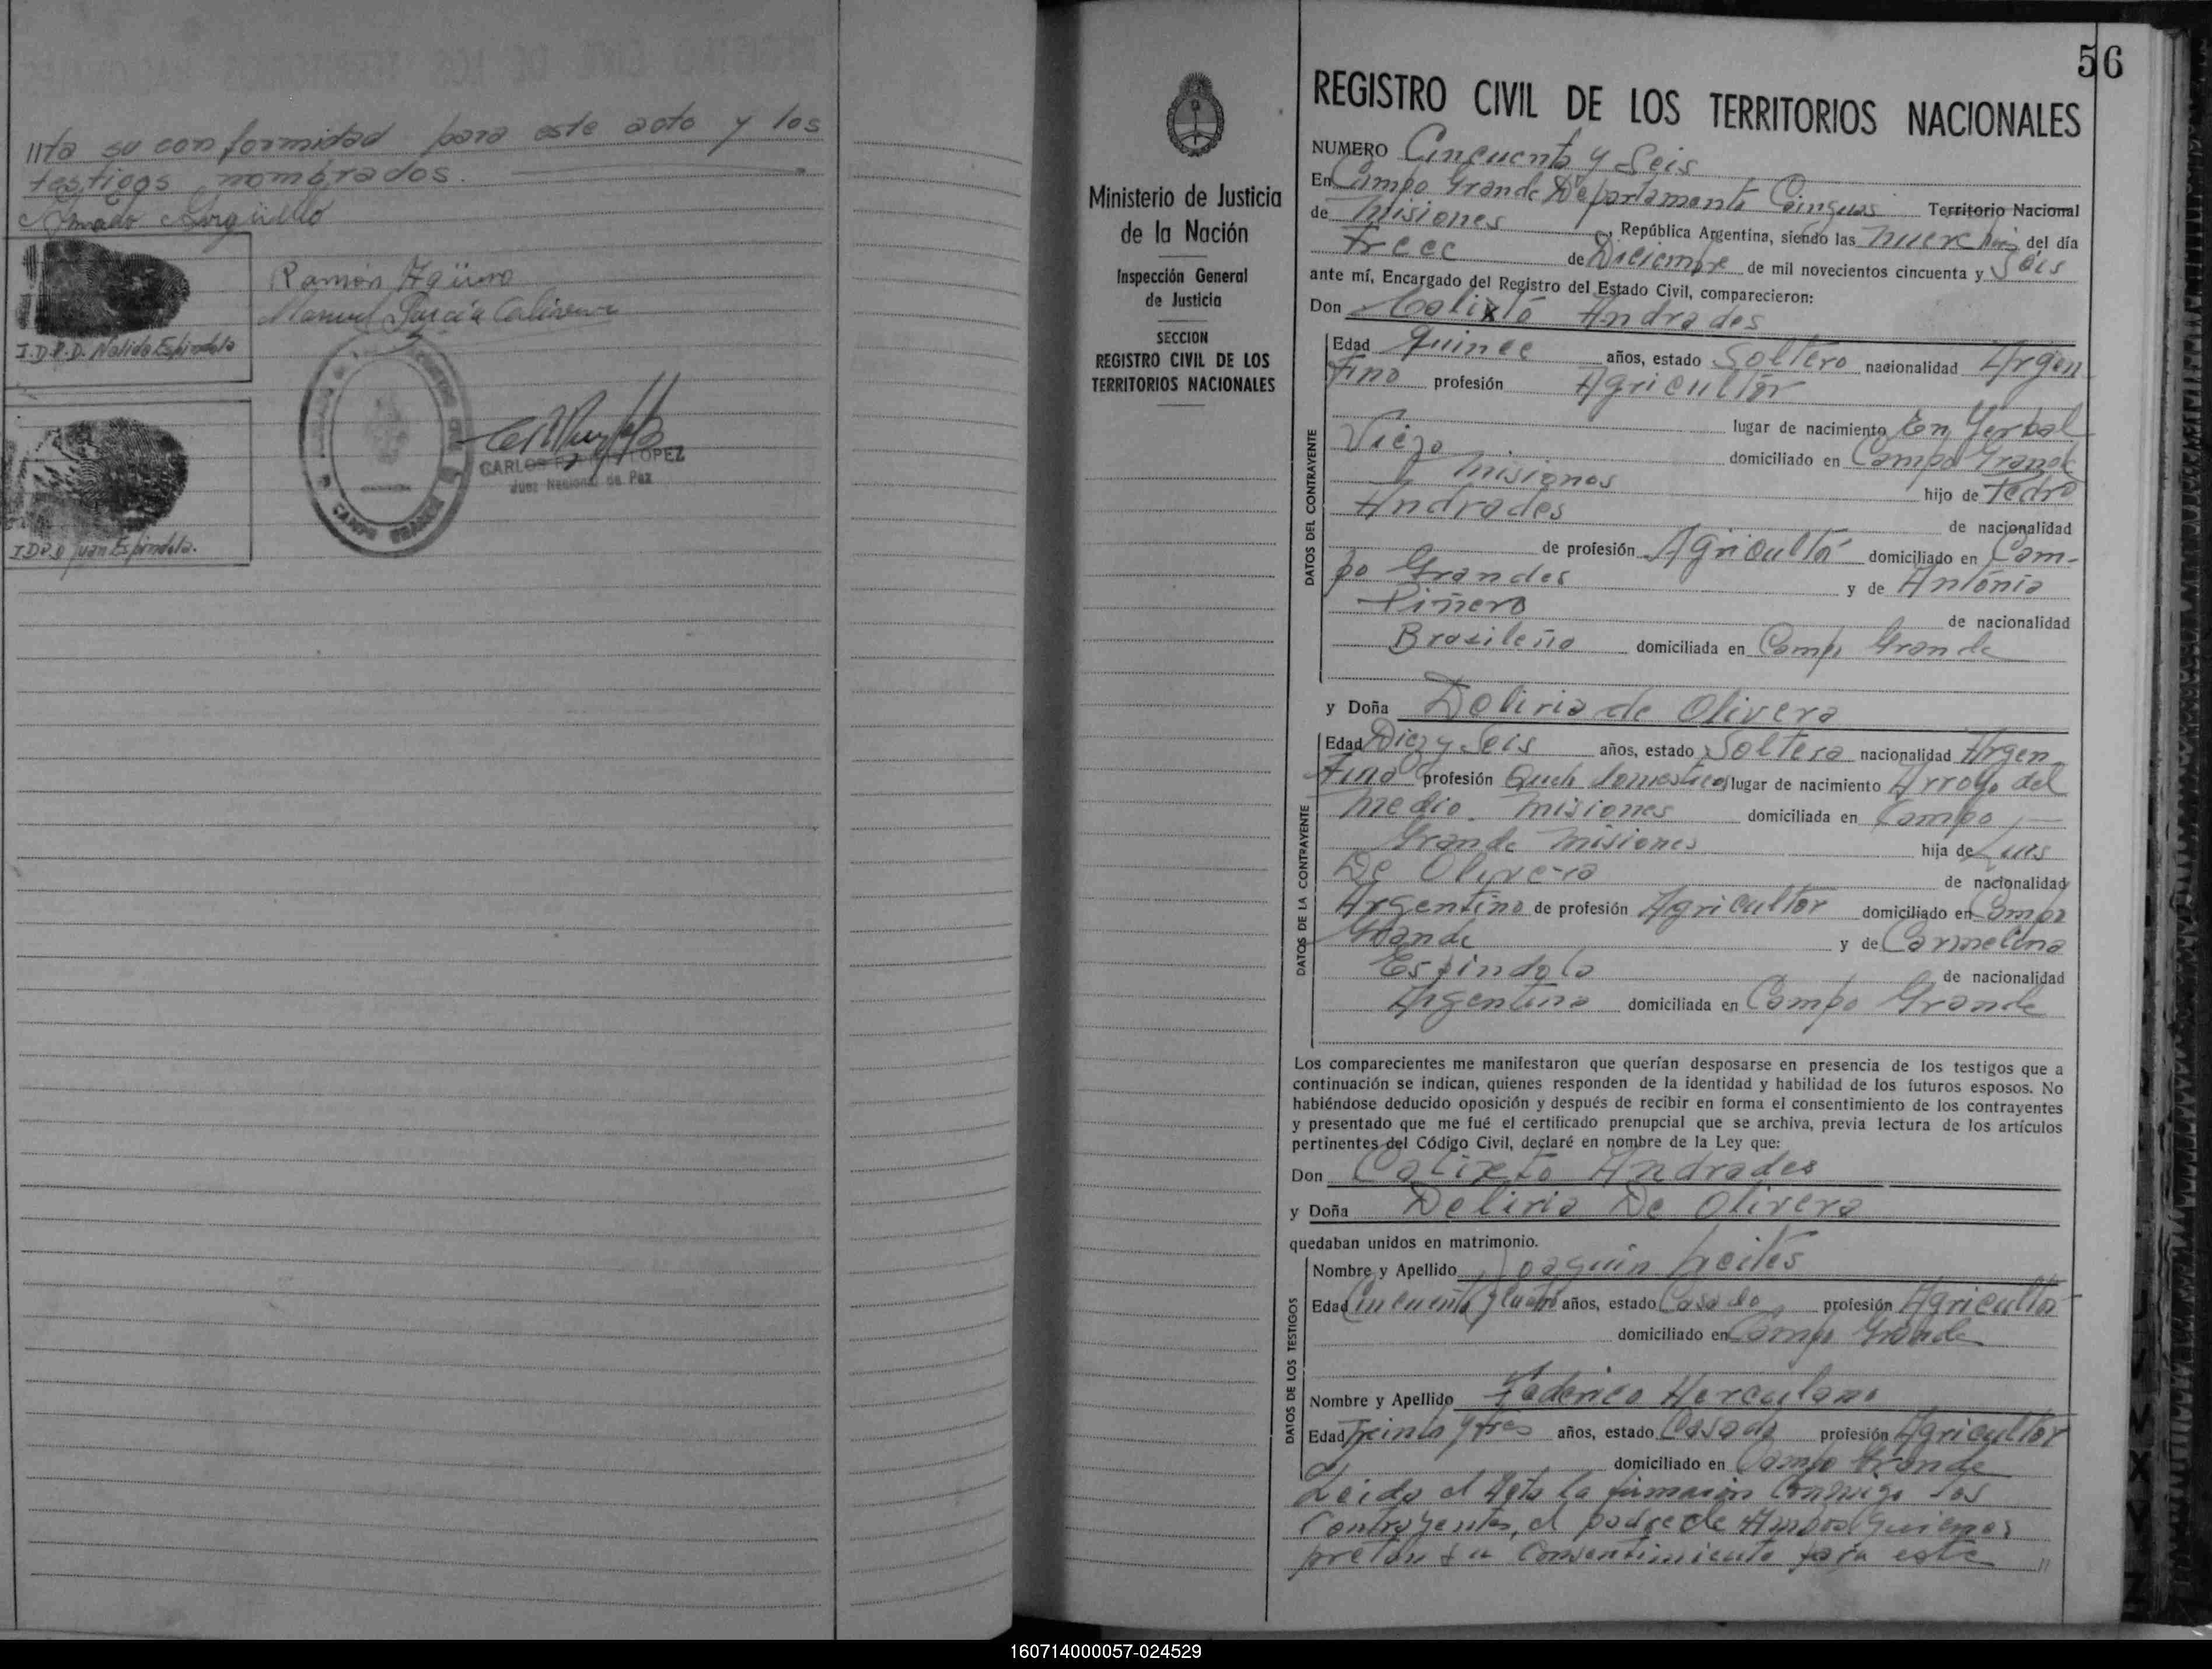 lita su conformidad para este acto y los
testigos nombrados.
Amado Argüello
Ramón Agüero
Manuel García
I.D.P.D. Nalida Espindola
CARLOS LOPEZ
Juez Nacional de Paz
CAMPO GRANDE
I.D.P.D Juan Espindola.
56
Ministerio de Justicia
de la Nación
Inspección General
de Justicia
SECCION
REGISTRO CIVIL DE LOS
TERRITORIOS NACIONALES
REGISTRO CIVIL DE LOS TERRITORIOS NACIONALES
NUMERO Cincuenta y Seis
En Campo Grande Departamento Cainguas Territorio Nacional
de Misiones, República Argentina, siendo las nueve horas del día
trece de Diciembre de mil novecientos cincuenta y Seis
ante mí, Encargado del Registro del Estado Civil, comparecieron:
Don Calixto Andrades
DATOS DEL CONTRAYENTE
Edad Quince años, estado Soltero nacionalidad Argen
tino profesión Agricultor
lugar de nacimiento En Yerbal
Viejo domiciliado en Campo Grande
Misiones hijo de Pedro
Andrades de nacionalidad
de profesión Agriculto domiciliado en Cam-
po Grandes y de Antonia
Piñero de nacionalidad
Brasileña domiciliada en Campo Grande
y Doña Deliria de Olivera
DATOS DE LA CONTRAYENTE
Edad Diez y Seis años, estado Soltera nacionalidad Argen
tina profesión Queh domesticos lugar de nacimiento Arroyo del
medio. Misiones domiciliada en Campo
Grande Misiones hija de Luis
De Olivera de nacionalidad
Argentino de profesión Agricultor domiciliado en Campo
Grande y de Carmelina
Espindola de nacionalidad
Argentina domiciliada en Campo Grande
Los comparecientes me manifestaron que querían desposarse en presencia de los testigos que a
continuación se indican, quienes responden de la identidad y habilidad de los futuros esposos. No
habiéndose deducido oposición y después de recibir en forma el consentimiento de los contrayentes
y presentado que me fué el certificado prenupcial que se archiva, previa lectura de los artículos
pertinentes del Código Civil, declaré en nombre de la Ley que:
Don Calixto Andrades
y Doña Deliria De Olivera
quedaban unidos en matrimonio.
DATOS DE LOS TESTIGOS
Nombre y Apellido Joaquin Freites
Edad Cincuenta y Cuatro años, estado Casado profesión Agriculto
domiciliado en Campo Grande
Nombre y Apellido Federico Herculano
Edad Treinta y tres años, estado Casado profesión Agricultor
domiciliado en Campo Grande
Leida el Acta la firmaron Conmigo los
Contrayentes, el padre de Ambos Quienes
pretan su Consentimiento para este //
160714000057-024529